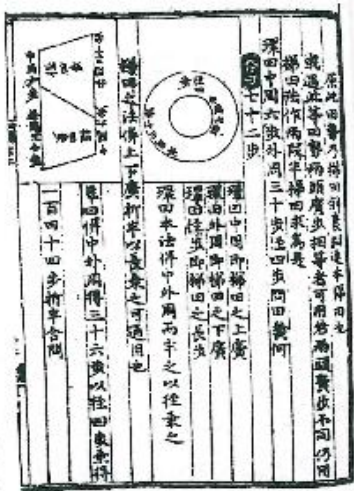 此田勢乃梯田
遇此等田勢兩頭廣步相等者可用若兩頭廣步不同仍用
梯田法作兩段半梯田求為是
環田中周六步外周三十步徑四步問田幾何
答曰七十二步
環田中周即梯田之上廣
環田外周即梯田之下廣
環田徑步即梯田之長步
環田本法併中外周而半之以徑乘之
梯田之法併上下廣折半以長乘之可通用也
環田併中外周得三十六步以徑四步乘得
一百四十四步折半合問